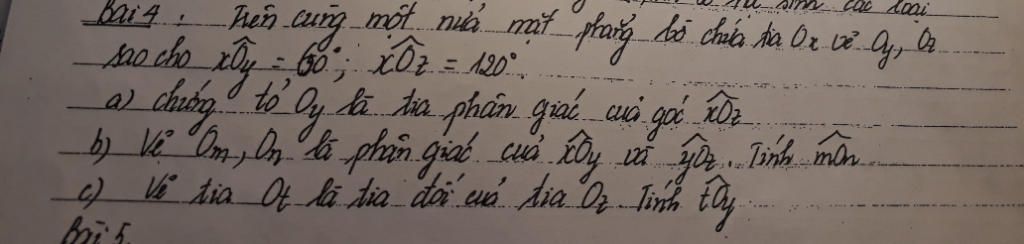 sinh các loại
Bài 4 : Trên cùng một nửa mặt phẳng bờ chứa tia Ox vẽ Oy, Oz
sao cho xOy = 60°; xOz = 120°.
a) chứng tỏ Oy là tia phân giác của góc xOz
b) Vẽ Om, On là phân giác của xOy và yOz. Tính mOn
c) Vẽ tia Ot là tia đối của tia Oz. Tính tOy
Bài 5